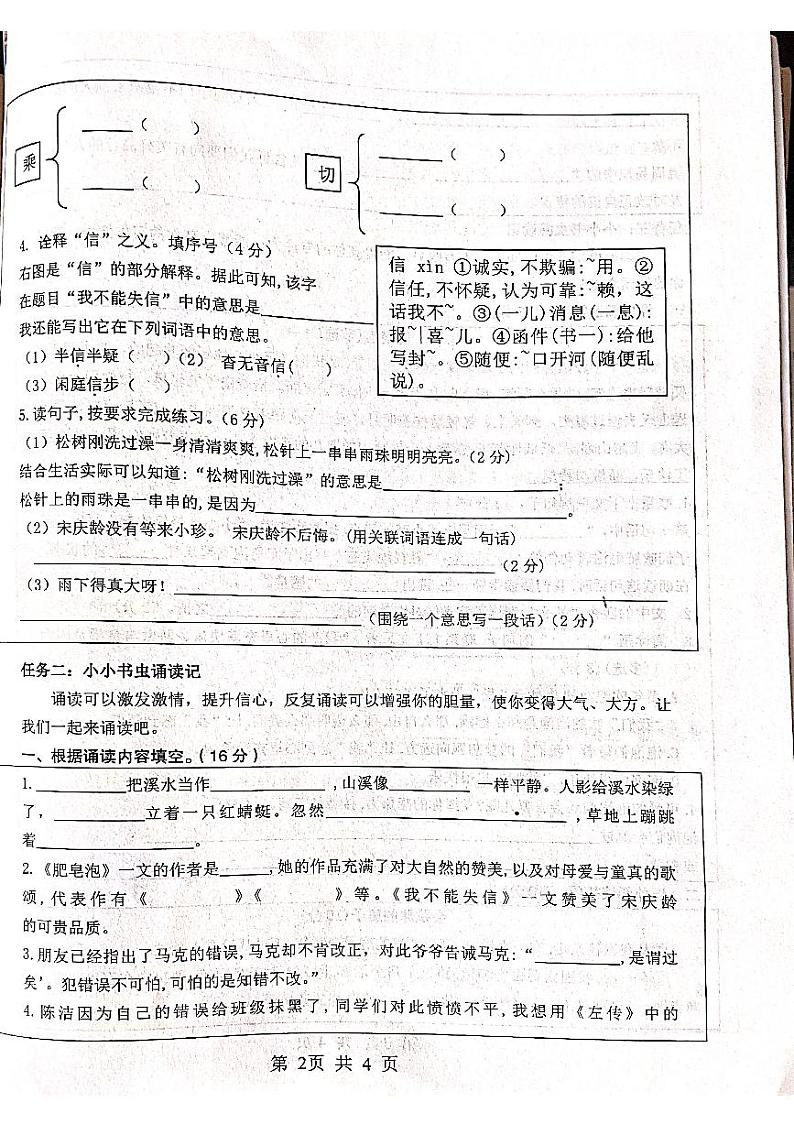 乘
____（    ）
____（    ）
切
____（    ）
____（    ）
4. 诠释“信”之义。填序号（4分）
右图是“信”的部分解释。据此可知,该字
在题目“我不能失信”中的意思是____________
我还能写出它在下列词语中的意思。
（1）半信半疑（    ）（2） 杳无音信（    ）
（3）闲庭信步（    ）
信 xìn ①诚实,不欺骗:~用。②
信任,不怀疑,认为可靠:~赖，这
话我不~。③(一儿)消息(一息):
报~|喜~儿。④函件(书一):给他
写封~。⑤随便:~口开河(随便乱
说)。
5.读句子,按要求完成练习。（6分）
（1）松树刚洗过澡一身清清爽爽,松针上一串串雨珠明明亮亮。（2分）
结合生活实际可以知道：“松树刚洗过澡”的意思是____________；
松针上的雨珠是一串串的,是因为____________。
（2）宋庆龄没有等来小珍。 宋庆龄不后悔。（用关联词语连成一句话）
____________（2分）
（3）雨下得真大呀！____________
____________（围绕一个意思写一段话）（2分）
任务二：小小书虫诵读记
诵读可以激发激情，提升信心，反复诵读可以增强你的胆量，使你变得大气、大方。让
我们一起来诵读吧。
一、根据诵读内容填空。（16分）
1. ________把溪水当作____________,山溪像________一样平静。人影给溪水染绿
了，________立着一只红蜻蜓。忽然____________，草地上蹦跳
着____________。
2.《肥皂泡》一文的作者是______,她的作品充满了对大自然的赞美,以及对母爱与童真的歌
颂，代表作有《        》《        》等。《我不能失信》一文赞美了宋庆龄
的可贵品质。
3.朋友已经指出了马克的错误,马克却不肯改正，对此爷爷告诫马克：“________,是谓过
矣’。犯错误不可怕,可怕的是知错不改。”
4.陈洁因为自己的错误给班级抹黑了,同学们对此愤愤不平,我想用《左传》中的
第 2页 共 4 页